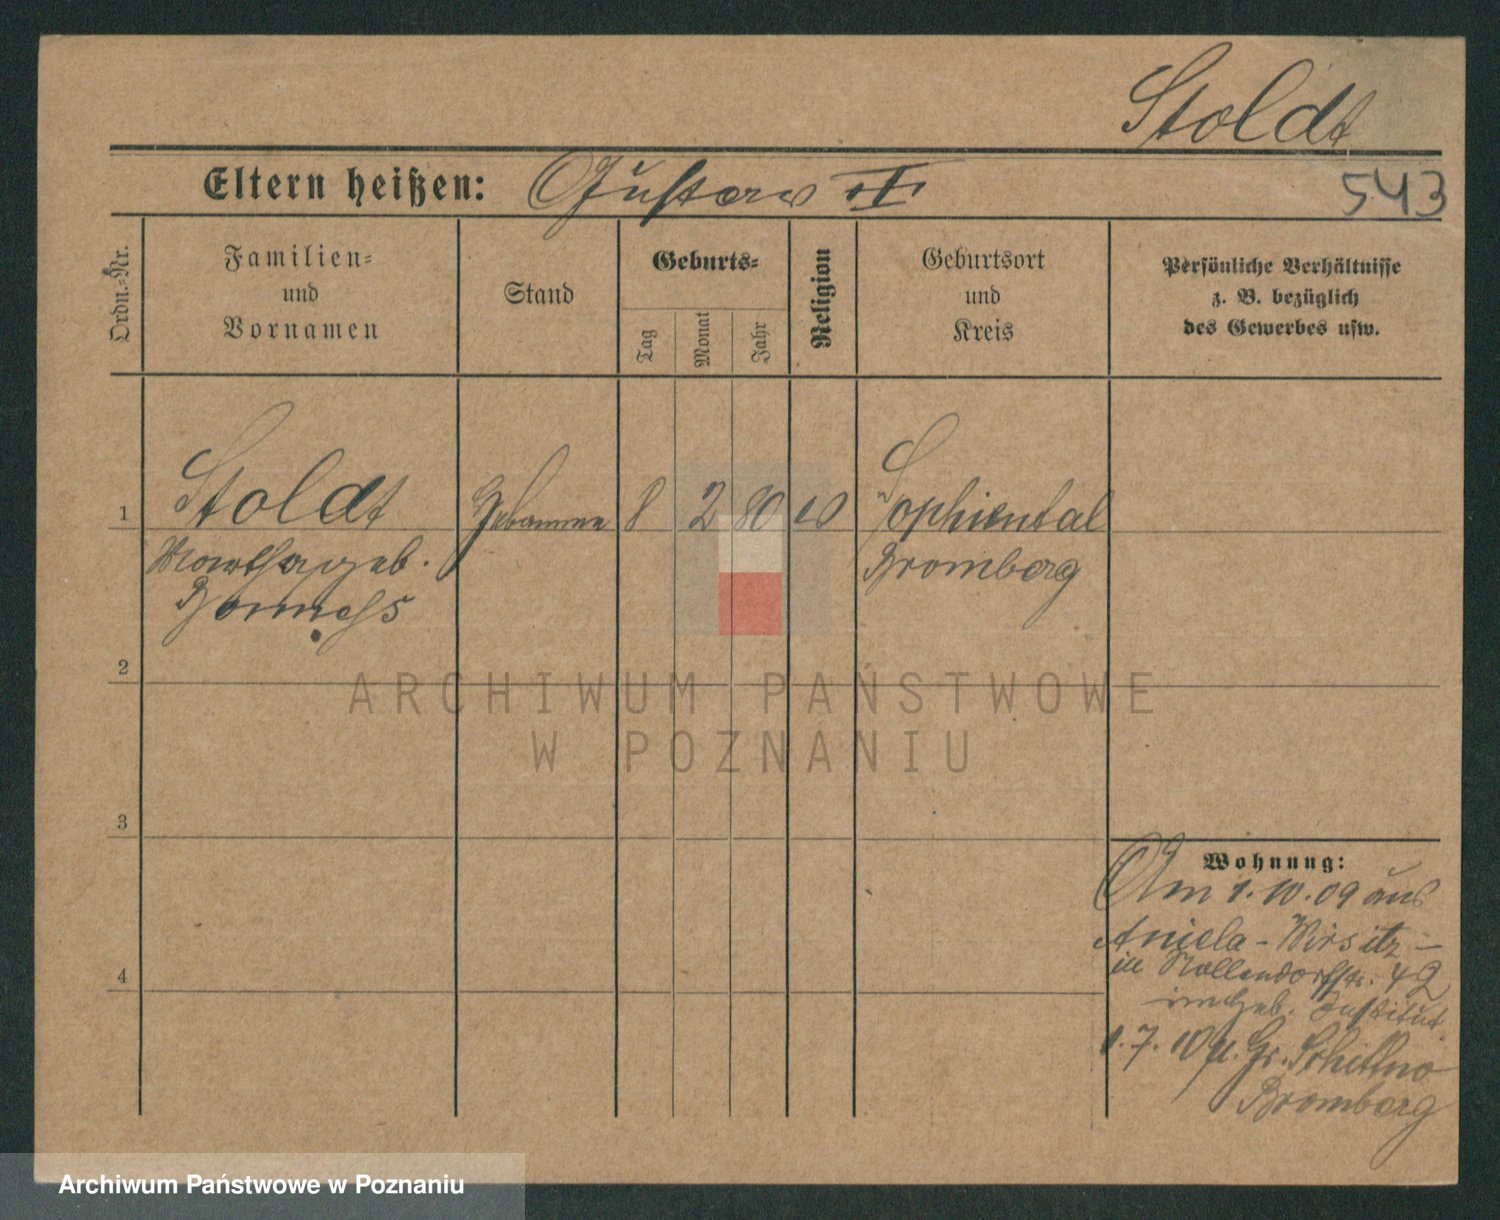 Stoldt
Eltern heißen: Gustav II
543
Ordn.-Nr.
Familien-
und
Vornamen
Stand
Geburts-
Tag
Monat
Jahr
Religion
Geburtsort
und
Kreis
Persönliche Verhältnisse
z. B. bezüglich
des Gewerbes usw.
1
Stoldt
Hebamme
8
2
80
ev
Sophiental
Martha geb.
Bromberg
2
ARCHIWUM PAŃSTWOWE
W POZNANIU
3
Wohnung:
Am 1.10.09 aus
Aniela - Wirsitz -
in Nollendorfstr. 42
im Heb. Institut
4
1.7.10 n. Gr.
Bromberg
Archiwum Państwowe w Poznaniu